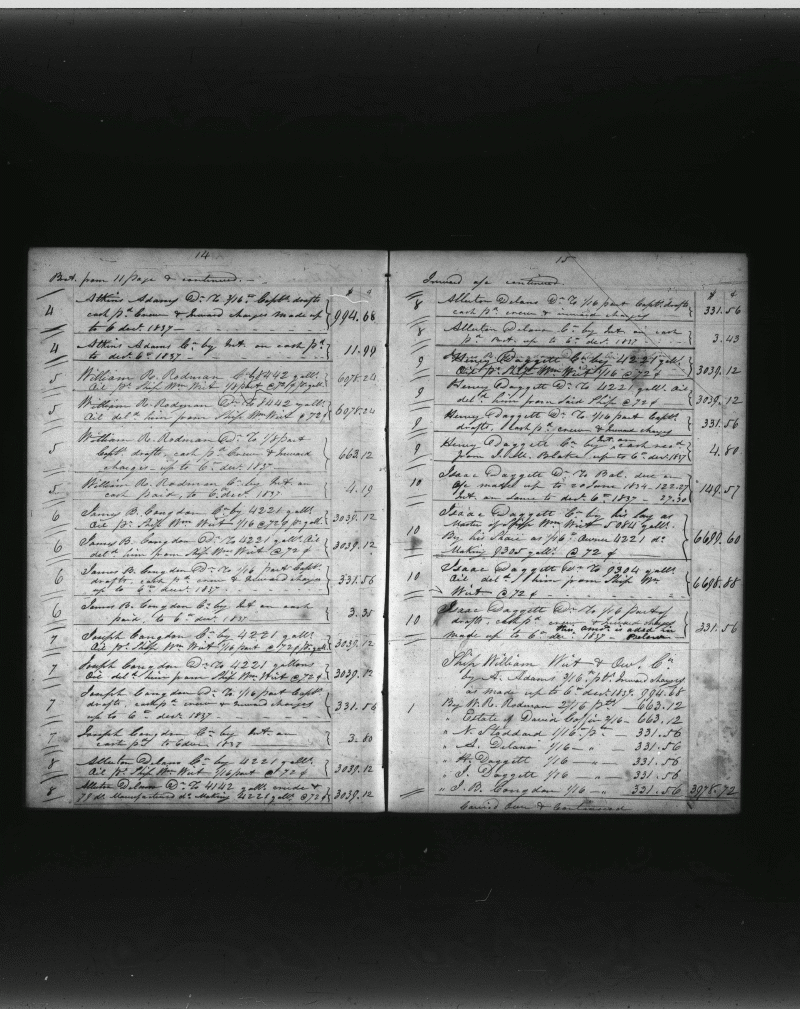 14
Brt. from 11 page & continued.
$ ¢
4 Atkins Adams Dr. To 3/16 Capts. drafts
cash pd. Crew & Inward charges made up
to 6 decr. 1837 — 994.68
4 Atkins Adams Cr. by Int. on cash pd.
to decr. 6th 1837 — 11.99
5 William R. Rodman Cr. by 8442 galls.
Oil pr. Ship Wm Wirt 1/8 part @ 72¢ pr. gall. 6078.24
5 William R. Rodman Dr. To 8442 galls.
Oil deld. him from Ship Wm Wirt @ 72¢ 6078.24
5 William R. Rodman Dr. To 1/8 part
Capts. drafts, cash pd. Crew & Inward
charges up to 6th decr. 1837 663.12
5 William R. Rodman Cr. by Int. on
cash paid, to 6 decr. 1837 4.19
6 James B. Congdon Cr. by 4221 galls.
Oil pr. Ship Wm Wirt 1/16 @ 72¢ pr. gall. 3039.12
6 James B. Congdon Dr. To 4221 galls. Oil
deld. him from Ship Wm Wirt @ 72¢ 3039.12
6 James B. Congdon Dr. To 1/16 part Capts.
drafts, cash pd. crew & Inward charges
up to 6th decr. 1837 331.56
6 James B. Congdon Cr. by Int. on cash
paid, to 6th decr. 1837 3.35
7 Joseph Congdon Cr. by 4221 galls.
Oil pr. Ship Wm Wirt 1/16 part @ 72¢ pr. gall. 3039.12
7 Joseph Congdon Dr. To 4221 gallons
Oil deld. him from Ship Wm Wirt @ 72¢ 3039.12
7 Joseph Congdon Dr. To 1/16 part Capts.
drafts, cash pd. crew & Inward charges
up to 6th decr. 1837 — 331.56
7 Joseph Congdon Cr. by Int. on
cash pd. to 6 decr. 1837 3.80
8 Allerton Delano Cr. by 4221 galls.
Oil pr. Ship Wm Wirt 1/16 part @ 72¢ 3039.12
8 Allerton Delano Dr. To 4142 galls. crude &
79 do. Manufactured do. Making 4221 galls. @ 72¢ 3039.12
15
Inward a/c continued.
$ ¢
8 Allerton Delano Dr. To 1/16 part Capts. drafts,
cash pd. crew & inward charges 331.56
8 Allerton Delano Cr. by Int. on cash
pd. Brt. up to 6th decr. 1837 3.43
9 Henry Daggett Cr. by 4221 galls.
Oil pr. Ship Wm Wirt 1/16 @ 72¢ 3039.12
9 Henry Daggett Dr. To 4221 galls. Oil
deld. him from said Ship @ 72¢ 3039.12
9 Henry Daggett Dr. To 1/16 part Capts.
drafts, cash pd. crew & Inward charges 331.56
9 Henry Daggett Cr. by Int. on cash
from up to 6th decr. 1837 4.80
10 Isaac Daggett Dr. To Bal. due on
a/c made up to 20 June 1834 - 122.27
Int. on same to decr. 6th 1837 - 27.30 149.57
10 Isaac Daggett Cr. by his lay as
Master of Ship Wm Wirt 5084 galls.
By his Share as 1/16th Owner 4221 do.
Making 9305 galls. @ 72¢ 6699.60
10 Isaac Daggett Dr. To 9304 galls.
Oil deld. him from Ship Wm
Wirt @ 72¢ 6698.88
10 Isaac Daggett Dr. To 1/16 part of
drafts, cash pd. crew & inward charges
made up to 6th decr. 1837 — 331.56
this amt. is aded in below
Ship William Wirt & Ow. Cr.
by A. Adams 3/16 pt. Inward charges
as made up to 6th decr. 1837. 994.68
1 By W. R. Rodman 2/16 pts — 663.12
" Estate of David Coffin 2/16 — 663.12
" N. Stoddard 1/16th pt — 331.56
" A. Delano 1/16 — " — 331.56
" H. Daggett 1/16 — " — 331.56
" I. Daggett 1/16 — " — 331.56
" J. B. Congdon 1/16 — " — 331.56 3978.72
Carried Over & Continued